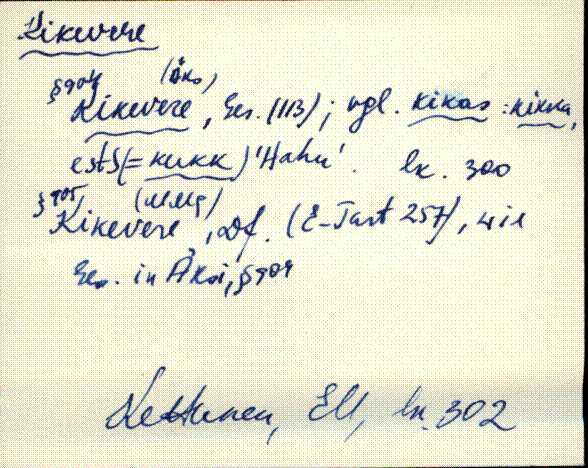 Kikevere
§904 (Äks)
Kikevere, Ges. (113); vgl. kikas : kikka,
estS (= kukk) 'Hahn'. lk. 300
§905, (MMg)
Kikevere, Df. (E-Tart 257), wie
Ges. in Äksi, §904
Kettunen, EM, lk. 302